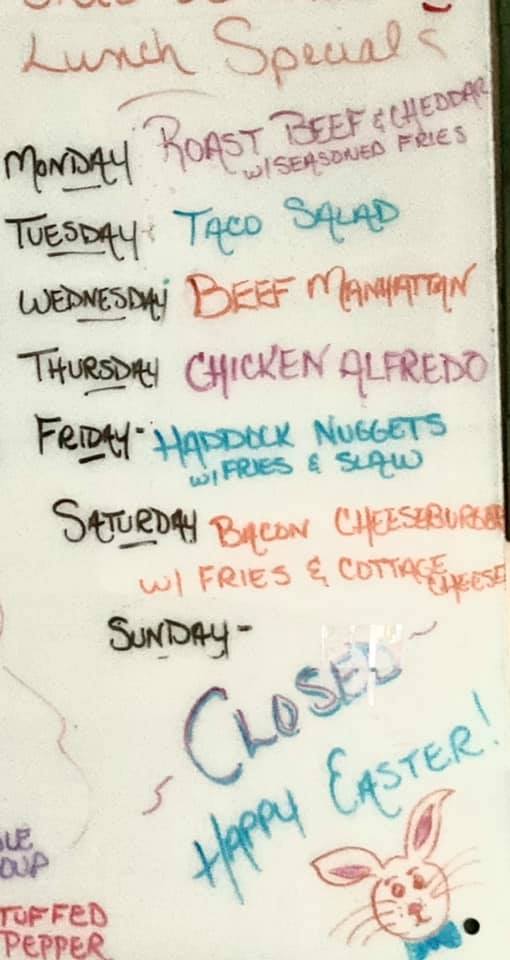 Lunch Specials
MONDAY ROAST BEEF & CHEDDAR
w/SEASONED FRIES
TUESDAY TACO SALAD
WEDNESDAY BEEF MANHATTAN
THURSDAY CHICKEN ALFREDO
FRIDAY- HADDOCK NUGGETS
w/FRIES & SLAW
SATURDAY BACON CHEESEBURGER
W/ FRIES & COTTAGE CHEESE
SUNDAY-
CLOSED
HAPPY EASTER!
LE
OUP
TUFFED
PEPPER